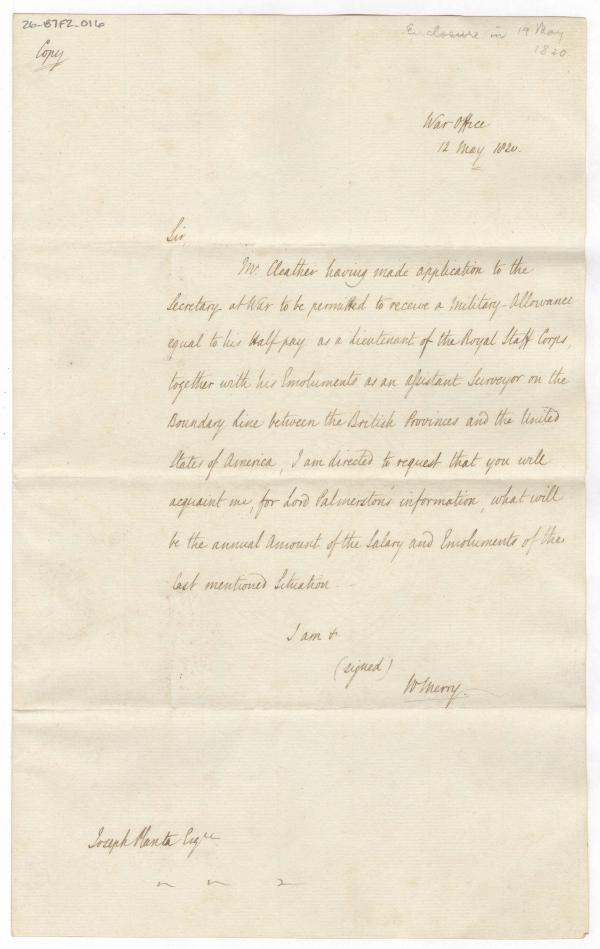 26-B7F2-016
Enclosure in 19 May
1820
Copy
War Office
12 May 1820.
Sir,
Mr. Cleather having made application to the
Secretary at War to be permitted to receive a Military Allowance
equal to his Half pay as a Lieutenant of the Royal Staff Corps,
together with his Emoluments as an assistant Surveyor on the
Boundary Line between the British Provinces and the United
States of America, I am directed to request that you will
acquaint me, for Lord Palmerston's information, what will
be the annual Amount of the Salary and Emoluments of the
last mentioned Situation.
I am &
(signed)
W Merry.
Joseph Planta Esqre